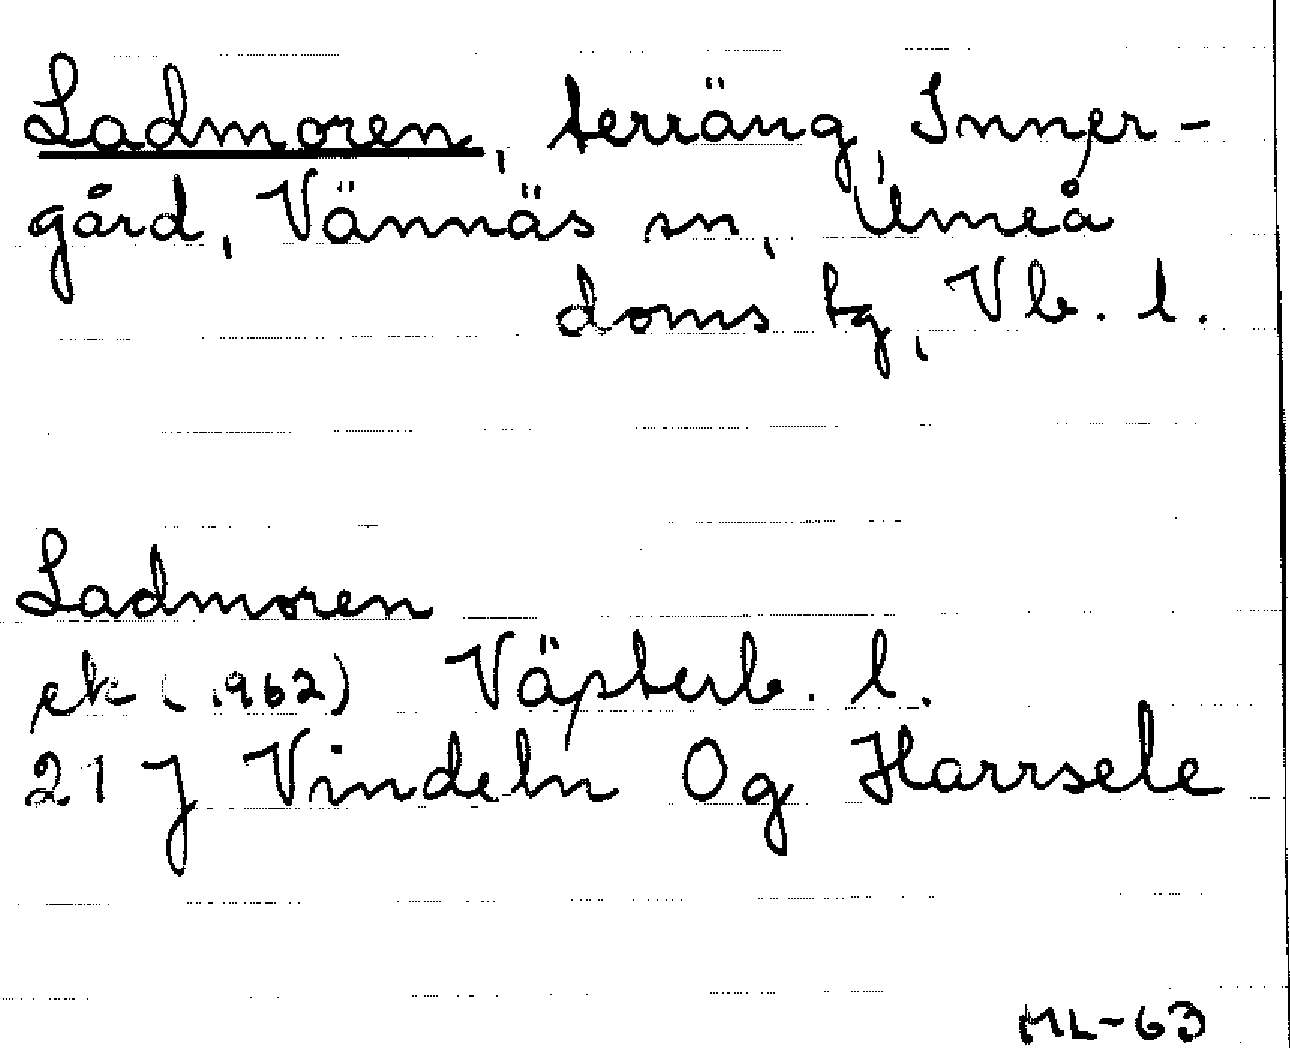 Ladmoren, terräng, Inner-
gård, Vännäs sn, Umeå
doms tg, Vb. l.
Ladmoren
ek (1962) Västerb. l.
21 J Vindeln 0g Harrsele
ML-63